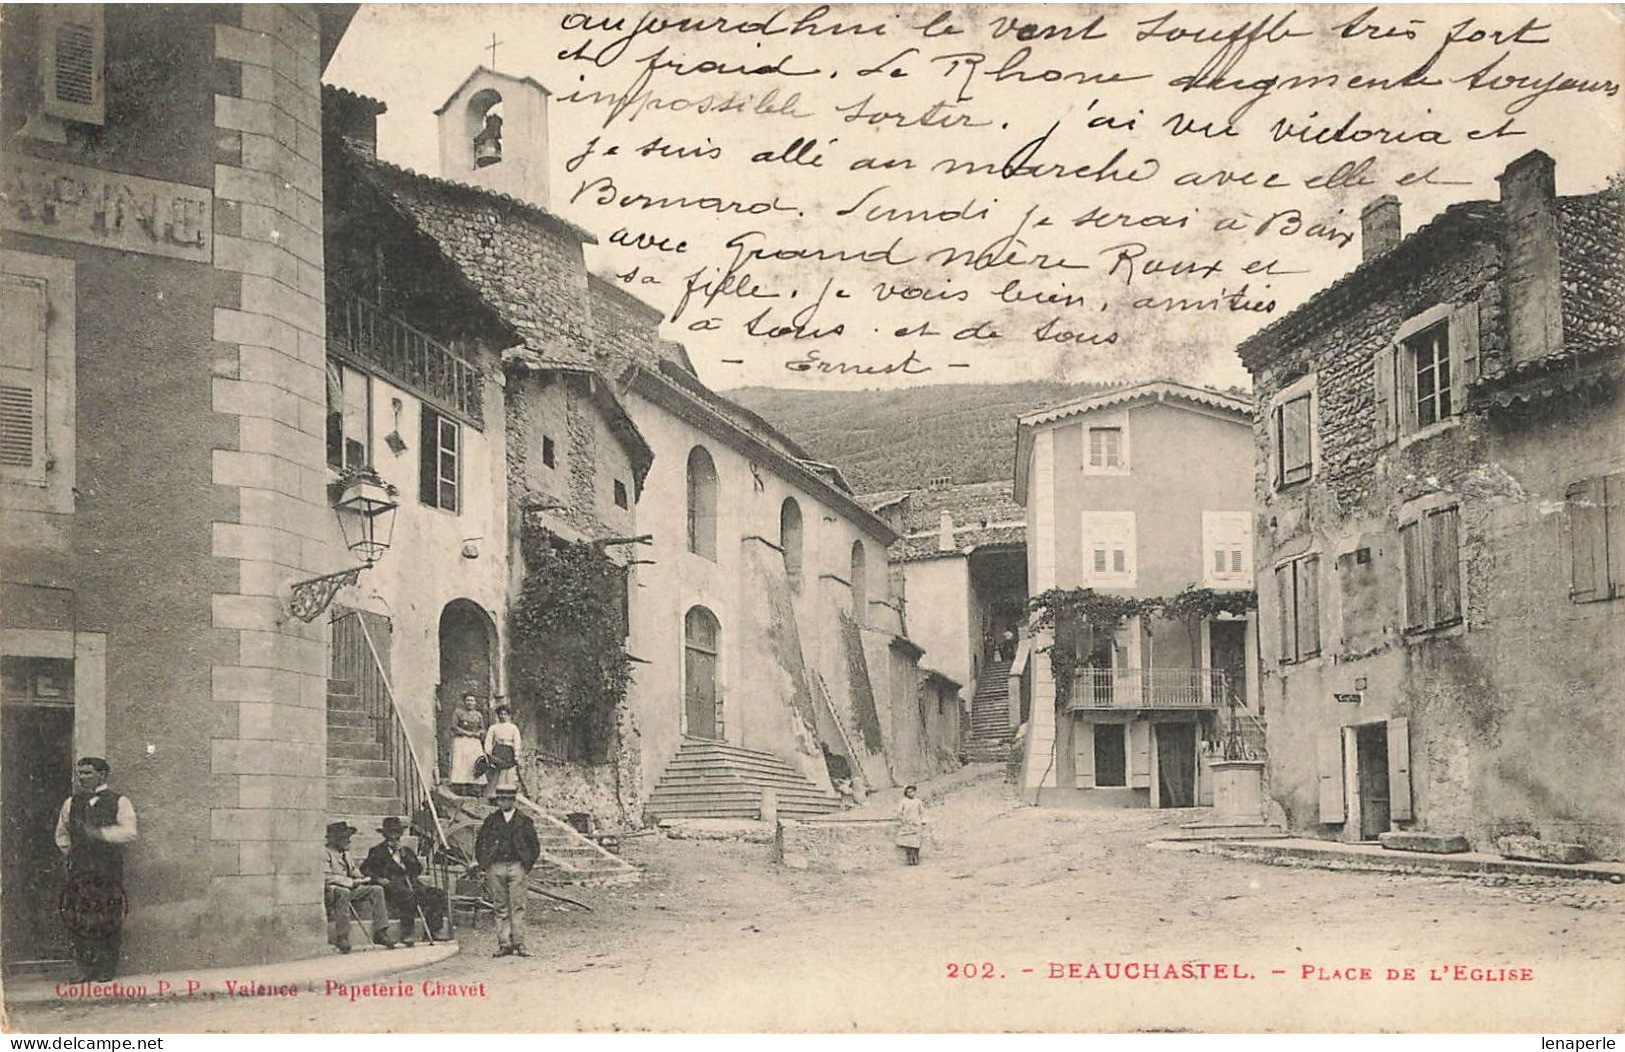 aujourdhui le vent souffle très fort
et fraid. Le Rhone augmente toujours
impossible sortir. j'ai vu victoria et
je suis allé au marché avec elle et
Bernard. Lundi je serai à Baix
avec Grand mère Roux et
sa fille. je vais bien, amitiés
à tous. et de tous
- Ernest -
APINE
202. - BEAUCHASTEL. - PLACE DE L'EGLISE
Collection P. P., Valence - Papeterie Chavet
delcampe.net
lenaperle